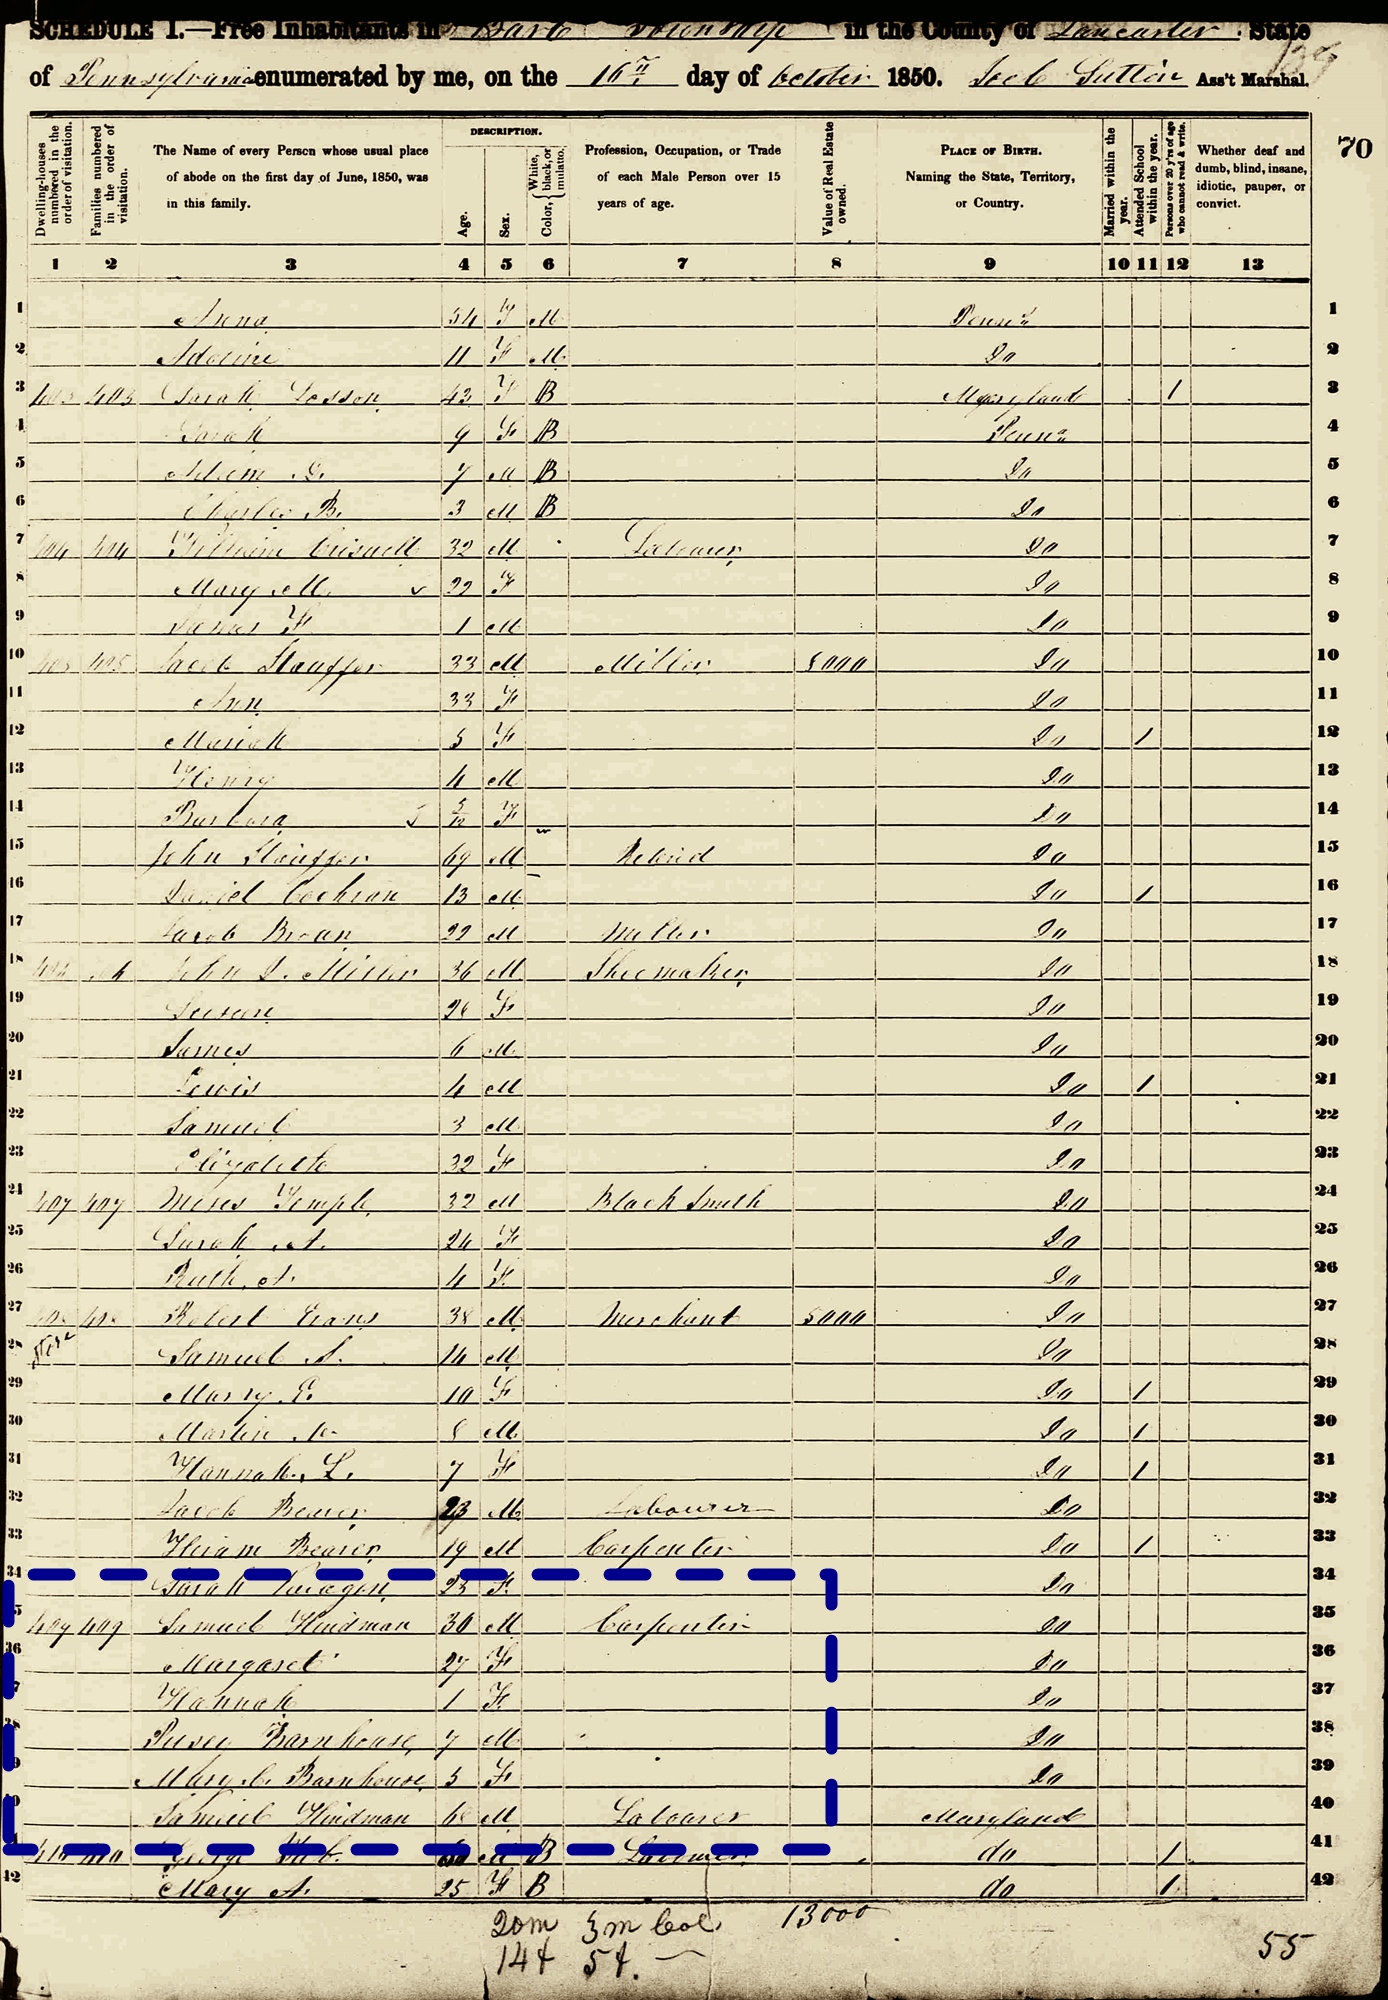 SCHEDULE I.—Free Inhabitants in Bart Township in the County of Lancaster State
of Pennsylvania enumerated by me, on the 16th day of October 1850. Sutton Ass't Marshal.
70
Dwelling-houses numbered in the order of visitation.
Families numbered in the order of visitation.
The Name of every Person whose usual place of abode on the first day of June, 1850, was in this family.
DESCRIPTION.
Age.
Sex.
Color, { White, black, or mulatto.
Profession, Occupation, or Trade of each Male Person over 15 years of age.
Value of Real Estate owned.
PLACE OF BIRTH. Naming the State, Territory, or Country.
Married within the year.
Attended School within the year.
Persons over 20 y'rs of age who cannot read & write.
Whether deaf and dumb, blind, insane, idiotic, pauper, or convict.
1 2 3 4 5 6 7 8 9 10 11 12 13
1 Anna 34 F M Penna 1
2 Adeline 11 F M Do 2
3 403 403 Sarah 43 F B Maryland 1 3
4 Sarah 9 F B Penna 4
5 7 M B Do 5
6 Charles B. 3 M B Do 6
7 404 404 William Criswell 32 M Labourer Do 7
8 Mary M. 22 F Do 8
9 James F 1 M Do 9
10 405 405 Jacob Stauffer 33 M Miller 8000 Do 10
11 Ann 33 F Do 11
12 Mariah 5 F Do 1 12
13 Henry 4 M Do 13
14 Barbara 5/12 F Do 14
15 John Stauffer 69 M Retired Do 15
16 Daniel Cochran 13 M Do 1 16
17 Jacob Broun 22 M Miller Do 17
18 John Miller 36 M Shoemaker Do 18
19 Susan 26 F Do 19
20 James 6 M Do 20
21 Lewis 4 M Do 1 21
22 Samuel 3 M Do 22
23 Elizabeth 32 F Do 23
24 407 407 Moses Temple 32 M Black Smith Do 24
25 Sarah A. 24 F Do 25
26 Ruth A. 4 F Do 26
27 408 408 Robert Evans 38 M Merchant 5000 Do 27
28 Store Samuel S. 14 M Do 28
29 Marry E. 10 F Do 1 29
30 Martin 8 M Do 1 30
31 Hannah L. 7 F Do 1 31
32 Jacob Beaver 23 M Labourer Do 32
33 Hiram Beaver 19 M Carpenter Do 1 33
34 Sarah 23 F Do 34
35 409 409 Samuel Hindman 30 M Carpenter Do 35
36 Margaret 27 F Do 36
37 Hannah 1 F Do 37
38 Pusey Barnhouse 7 M Do 38
39 Mary C. Barnhouse 5 F Do 39
40 Samuel Hindman M Labourer Maryland 40
41 410 410 George M B Labourer do 1 41
42 Mary A. 25 F B do 1 42
20m 3m Col. 13000
14f 5f. 55